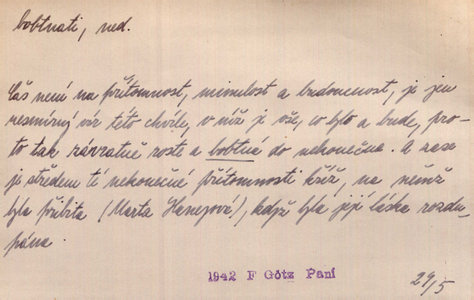 bobtnati, ned.
Čas není na přítomnost, minulost a budoucnost, je jen
nesmírný vír této chvíle, v níž je vše, co bylo a bude, pro-
to tak závratně roste a bobtná do nekonečna. A zase
je středem té nekonečné přítomnosti kříž, na němž
byla přibita (Marta Hanejová), když byla její láska rozdu-
pána.
1942 F Götz Paní
29/5